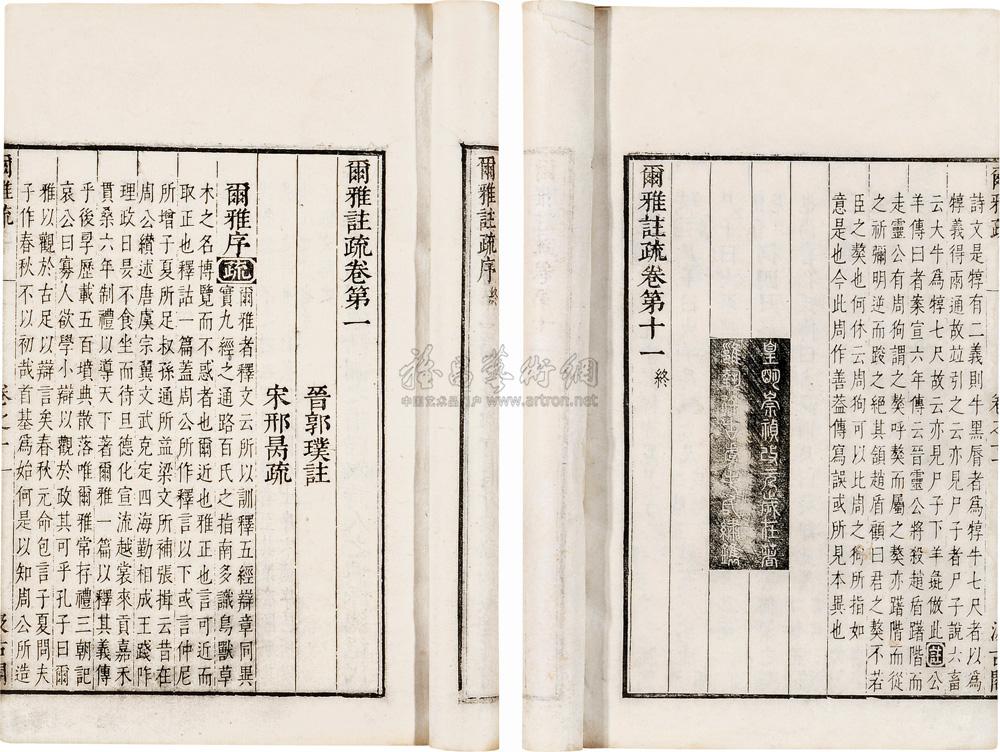 爾雅註疏序終
爾雅註疏卷第一
晉郭璞註
宋邢昺疏
爾雅序疏爾雅者釋文云所以訓釋五經辯章同異
實九經之通路百氏之指南多識鳥獸草
木之名博覽而不惑者也爾近也雅正也言可近而
取正也釋詁一篇蓋周公所作釋言以下或言仲尼
所增子夏所足叔孫通所益梁文所補張揖云昔在
周公纘述唐虞宗翼文武克定四海勤相成王踐阼
理政日昃不食坐而待旦德化宣流越裳來貢嘉禾
貫桑六年制禮以導天下著爾雅一篇以釋其義傳
乎後孠歷載五百墳典散落唯爾雅常存禮三朝記
哀公曰寡人欲學小辯以觀於政其可乎孔子曰爾
雅以觀於古足以辯言矣春秋元命包言子夏問夫
子作春秋不以初哉首基爲始何是以知周公所造
爾雅疏 卷之一 一
爾雅疏
詩文是犉有二義則牛黑脣者爲犉牛七尺者以爲
犉義得兩通故竝引之云亦見尸子者尸子說六畜
云大牛爲犉七尺故云亦見尸子下羊彘倣此註公
羊傳曰者案宣六年傳云晉靈公將殺趙盾躇階而
走靈公有周狗謂之獒呼獒而屬之獒亦躇階而從
之祁彌明逆而踆之絕其頷趙盾顧曰君之獒不若
臣之獒也何休云周狗可以比周之狗所指如
意是也今此周作善葢傳寫誤或所見本異也
皇明崇禎改元歲在著
雍執徐古虞毛氏繡鐫
爾雅註疏卷第十一終
雅昌藝術網
中国艺术品门户 www.artron.net